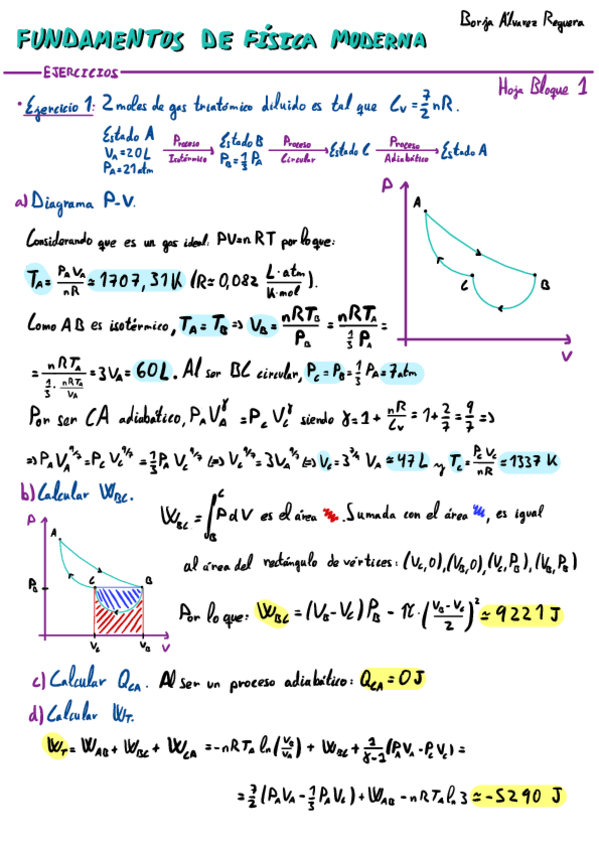 Borja Álvarez Reguera
FUNDAMENTOS DE FÍSICA MODERNA
EJERCICIOS
Hoja Bloque 1
• Ejercicio 1: 2 moles de gas triatómico diluido es tal que Cv = 7/2 nR.
Estado A V_A = 20 L P_A = 21 atm → Proceso Isotérmico → Estado B P_B = 1/3 P_A → Proceso Circular → Estado C → Proceso Adiabático → Estado A
a) Diagrama P-V.
P A B C V
Considerando que es un gas ideal. PV = nRT por lo que:
T_A = P_A V_A / nR ≃ 1707,31 K (R = 0,082 L·atm / K·mol).
Como AB es isotérmico, T_A = T_B => V_B = nRT_B / P_B = nRT_A / (1/3 P_A) =
= nRT_A / (1/3 · nRT_A / V_A) = 3V_A = 60 L. Al ser BC circular, P_C = P_B = 1/3 P_A = 7 atm
Por ser CA adiabático, P_A V_A^γ = P_C V_C^γ siendo γ = 1 + nR/Cv = 1 + 2/7 = 9/7 =>
=> P_A V_A^9/7 = P_C V_C^9/7 = 1/3 P_A V_C^9/7 <=> V_C^9/7 = 3V_A^9/7 <=> V_C = 3^7/9 V_A ≃ 47 L y T_C = P_C V_C / nR ≃ 1337 K
b) Calcular W_BC.
P A P_B C B V_C V_B V
W_BC = ∫_B^C P dV es el área . Sumada con el área , es igual
al área del rectángulo de vértices: (V_C, 0), (V_B, 0), (V_C, P_B), (V_B, P_B)
Por lo que: W_BC = (V_B - V_C) P_B - π · ((V_B - V_C)/2)² ≃ 9221 J
c) Calcular Q_CA. Al ser un proceso adiabático: Q_CA = 0 J
d) Calcular W_T.
W_T = W_AB + W_BC + W_CA = -nRT_A ln(V_B/V_A) + W_BC + 1/(γ-1) (P_A V_A - P_C V_C) =
= 7/2 (P_A V_A - 1/3 P_A V_C) + W_AB - nRT_A ln 3 ≃ -5290 J